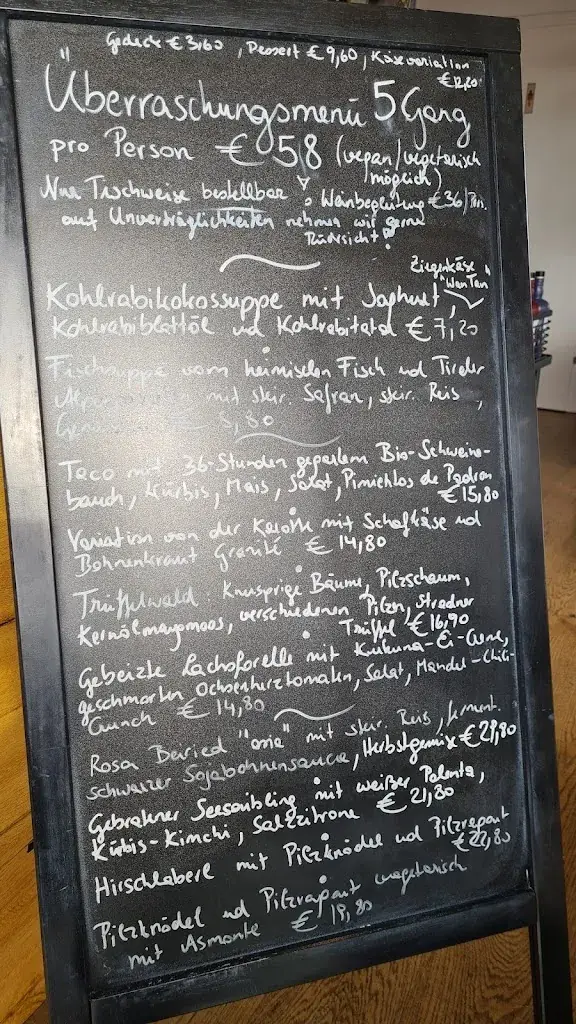 Gedeck € 3,60 , Dessert € 9,60 , Käsevariation
€ 12,20
Überraschungsmenü 5 Gang
pro Person € 58 (vegan/vegetarisch
möglich)
Nur Tischweise bestellbar Weinbegleitung € 36/Pers.
auf Unverträglichkeiten nehmen wir gerne
Rücksicht!
Ziegenkäse
"WanTan"
Kohlrabikokossuppe mit Joghurt,
Kohlrabiblattöl und Kohlrabitatar € 7,20
Fischsuppe vom heimischen Fisch und Tiroler
mit steir. Safran, steir. Reis,
8,80
Taco mit 36-Stunden gegartem Bio-Schweine-
bauch, Kürbis, Mais, Salat, Pimientos de Padron
€ 15,80
Variation von der Karotte mit Schafkäse und
Bohnenkraut Granité € 14,80
Trüffelwald: Knusprige Bäume, Pilzschaum,
Kernölmayonnaise, verschiedenen Pilzen,
Trüffel € 16,90
Gebeizte Lachsforelle mit Kurkuma-Ei-Creme,
geschmorten Ochsenherztomaten, Salat, Mandel-Chili-
Crunch € 14,80
Rosa Beiried "asia" mit steir. Reis, ferment.
schwarzer Sojabohnensauce, Herbstgemüse € 29,80
Gebratener Seesaibling mit weißer Polenta,
Kürbis-Kimchi, Salzzitrone € 21,80
Hirschleberl mit Pilzknödel und Pilzragout
€ 22,80
Pilzknödel und Pilzragout vegetarisch
mit Asmonte € 19,80